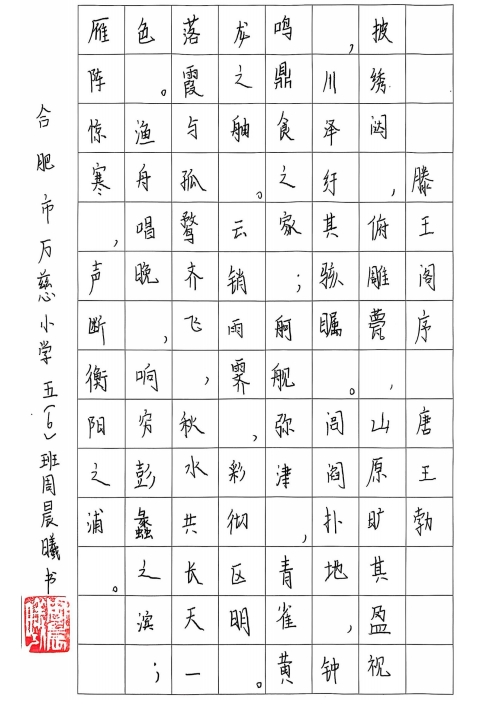 滕王阁序 唐王勃
披绣闼，俯雕甍，山原旷其盈视
，川泽纡其骇瞩。闾阎扑地，钟
鸣鼎食之家；舸舰弥津，青雀黄
龙之舳。云销雨霁，彩彻区明。
落霞与孤鹜齐飞，秋水共长天一
色。渔舟唱晚，响穷彭蠡之滨；
雁阵惊寒，声断衡阳之浦。
合肥市万慈小学五(6)班周晨曦书